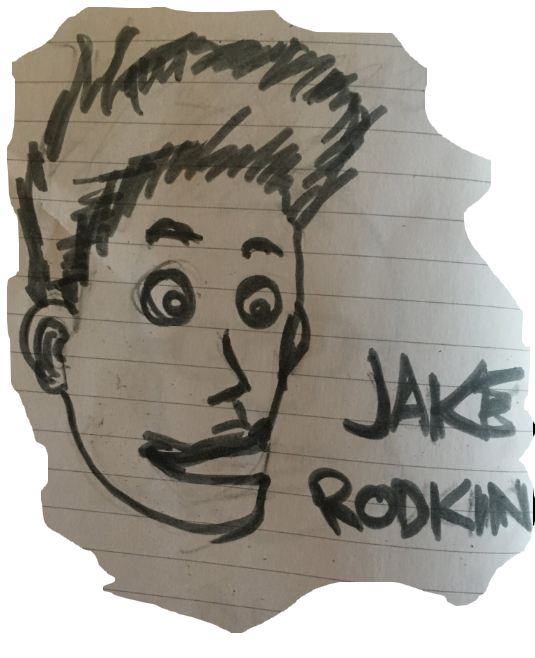 JAKE
RODKIN